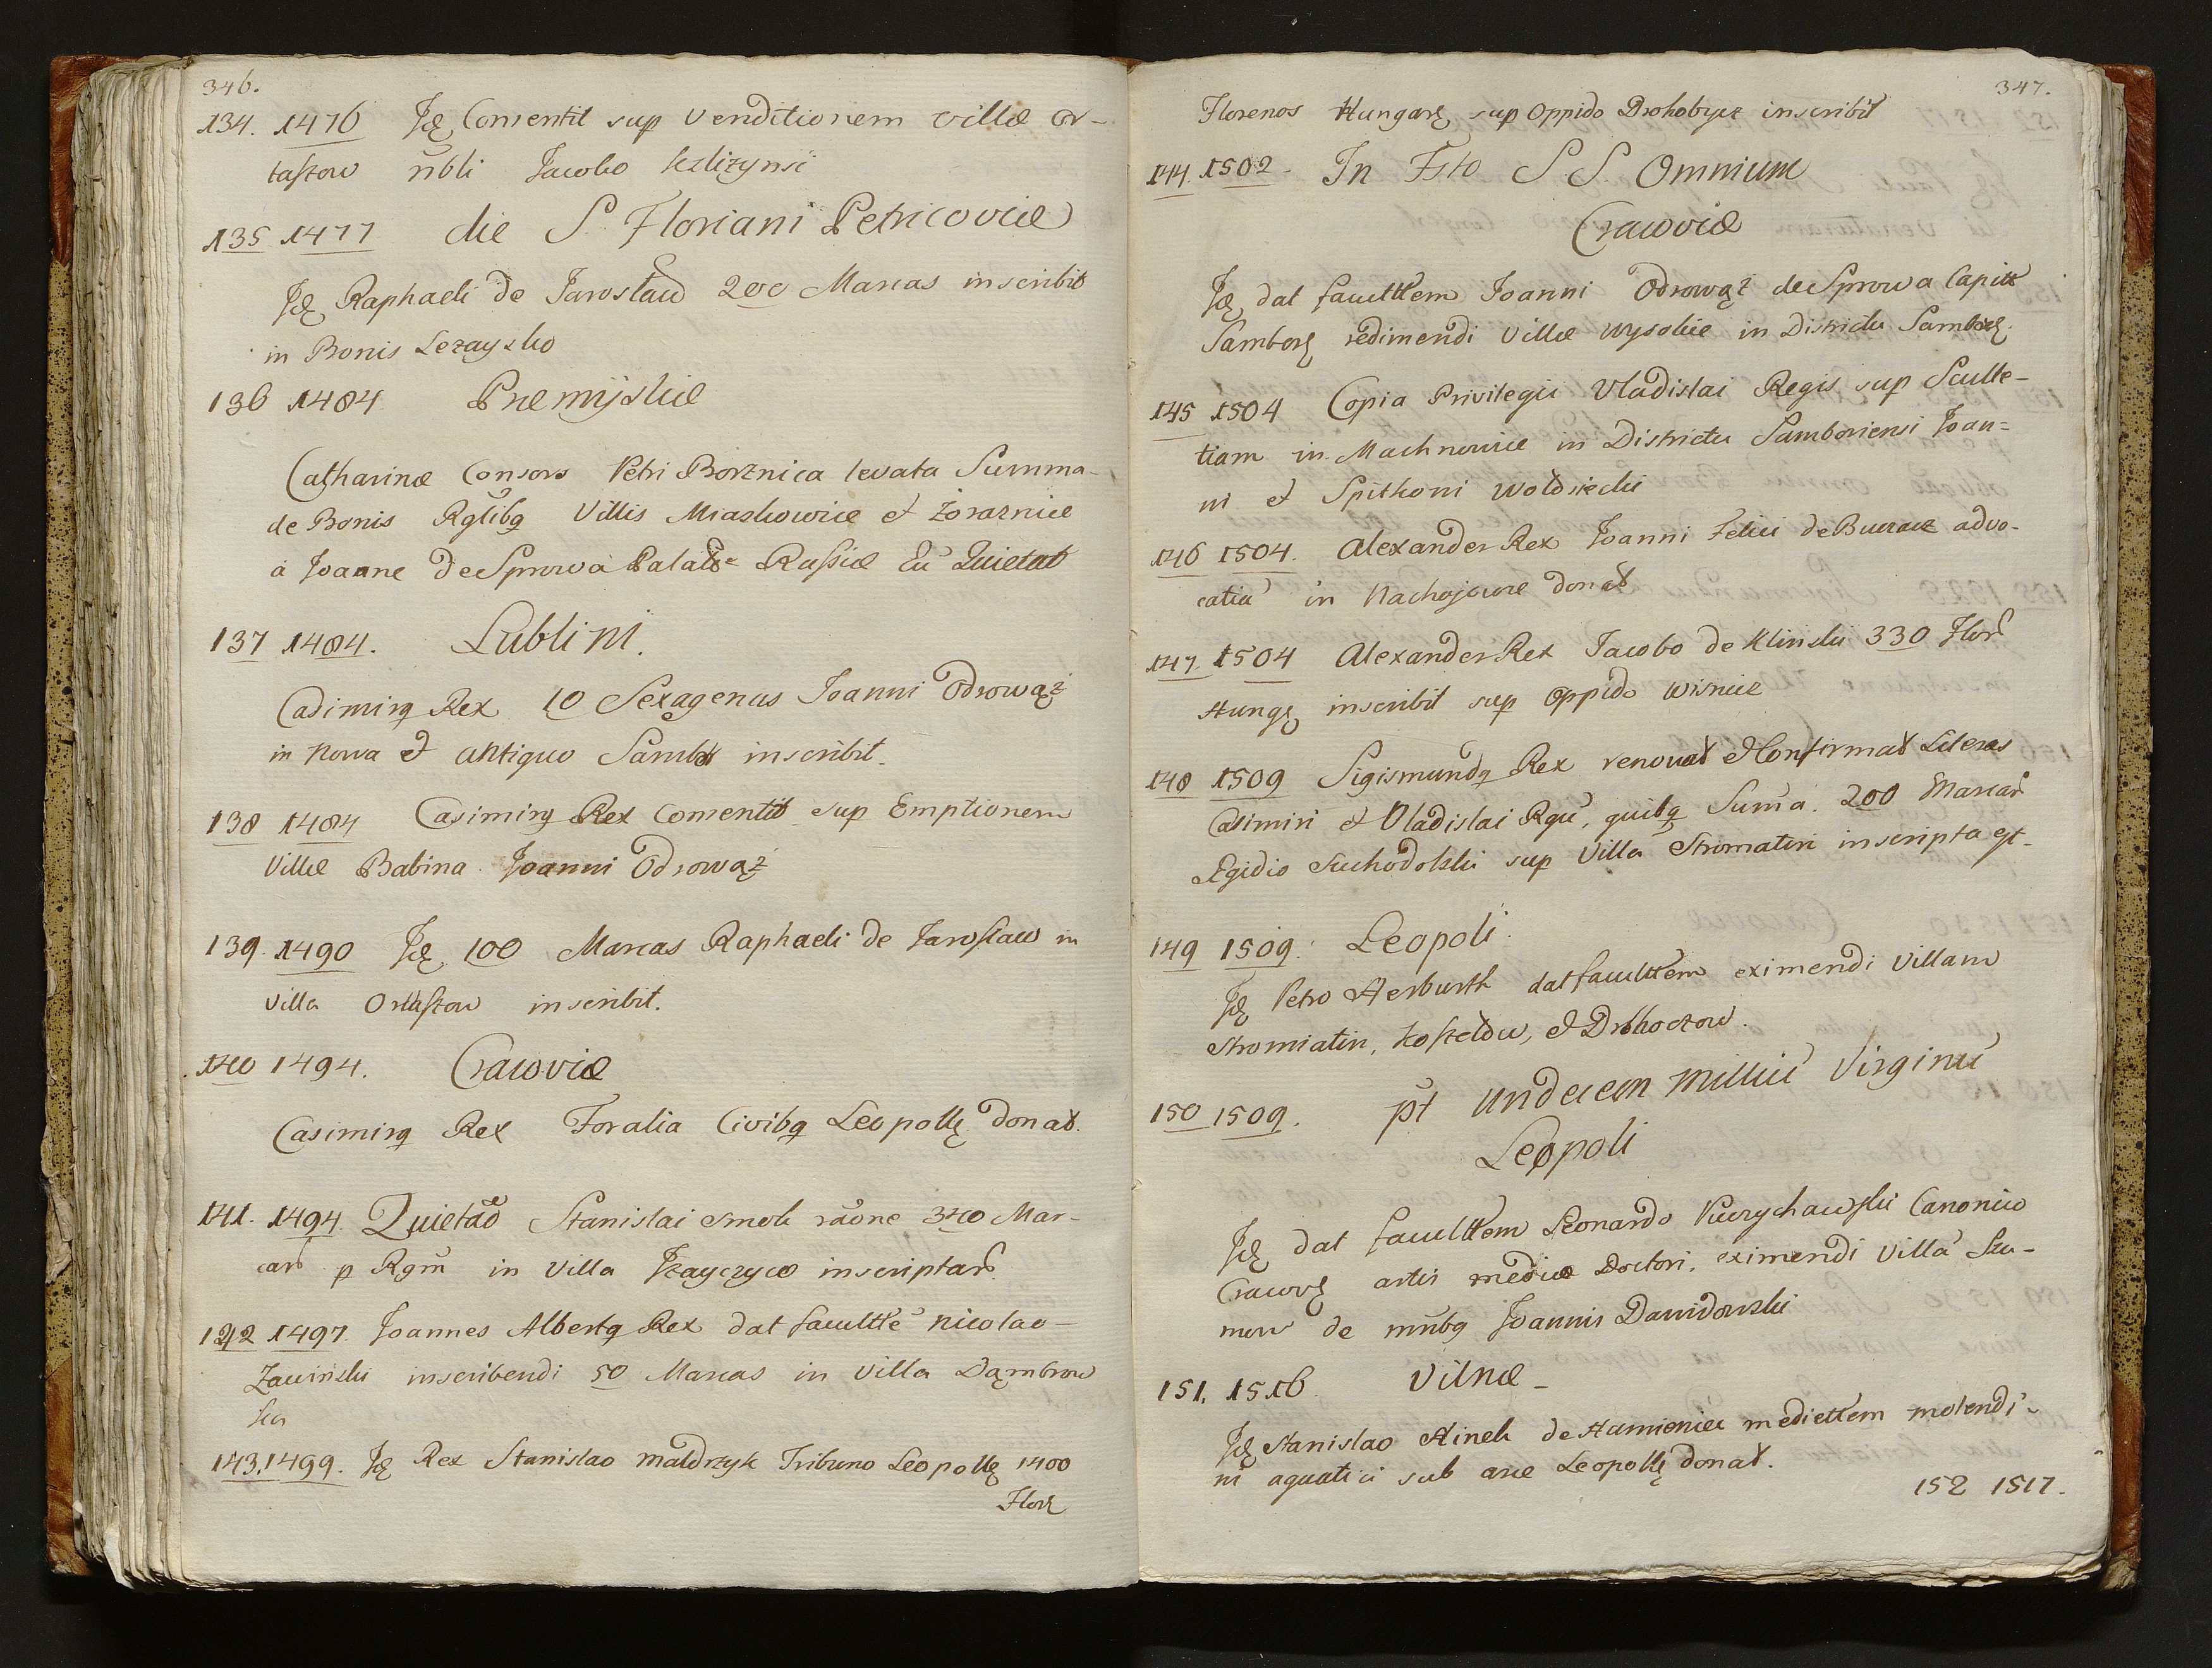 346.
134. 1476 Idẽ Consentit sup Venditionem villæ Or-
taszow nbli Jacobo
135 1477 die S. Floriani Petricoviæ
Idẽ Raphaeli de Jarosław 200 Marcas inscribit
in Bonis Lezaysko
136 1484 Premijsliæ
Catharinæ Consors Petri Borznica levata Summa
de Bonis Rglibq Villis Miaskowice et Żorażnice
a Joanne de Sprowa Palat Russiæ Eũ Quietat
137 1484. Lublini.
Casimirq Rex 10 Sexagenas Joanni Odrowąż
in Nowa et antiquo Sambor inscribit.
138 1484 Casimirq Rex Consentit sup Emptionem
Villæ Babina Joanni Odrowąż
139 1490 Idẽ 100 Marcas Raphaeli de Jarosław in
villa Ortaszow inscribit.
140 1494. Cracoviæ
Casimirq Rex Foralia Civibq Leopollẽ donat.
141. 1494. Quietao Stanislai Smok raõne 340 Mar-
car p Rgm in Villa inscriptar.
142 1497 Joannes Albertq Rex dat facultte Nicolao
Zawiński inscribendi 50 Marcas in Villa Dąmbrow
ka
143. 1499. Idẽ Rex Stanislao Maldrzyk Tribuno Leopollẽ 1400
Flor
347.
Florenos Hungarẽ sup Oppido Drohobycz inscribit
144. 1502 - In Fsto S S. Omnium
Cracoviæ
Idẽ dat faculttem Joanni Odrowąż de Sprowa Capitt
Samborẽ redimendi Villæ Wysokie in Districtu Samborẽ.
145 1504 Copia Privilegii Vladislai Regis sup Sculte-
tiam in Machnowice in Districtu Samboriensi Joan=
ni et Spitkoni Wołosiecki
146 1504. Alexander Rex Joanni Felici de Buczacz advo-
catia in donat
147. 1504 Alexander Rex Jacobo de Klinski 330 Flor
Hungẽ inscribit sup Oppido Wisnicz
148 1509 Sigismundq Rex renovat et Confirmat Literas
Casimiri et Vladislai Rgũ, quibq Suma 200 Marcar
Ægidio Suchodolski sup Villa Stromatin inscripta est.
149 1509. Leopoli.
Idẽ Petro Herburth dat facultttem eximendi Villam
Stromiatin, Koszelow, et Drohoczow.
150 1509. pt Undecem Milliũ Virginũ
Leopoli
Idẽ dat facultttem Leonardo Canonico
Cracovẽ artis medicæ Doctori, eximendi Villa Szu-
mow de mnbq Joannis Dawidowski
151. 1516. Vilnæ -
Idẽ Stanislao Hinek de Humieniec medietttem molendi-
ni aquatici sub arce Leopollẽ donat.
152 1517.